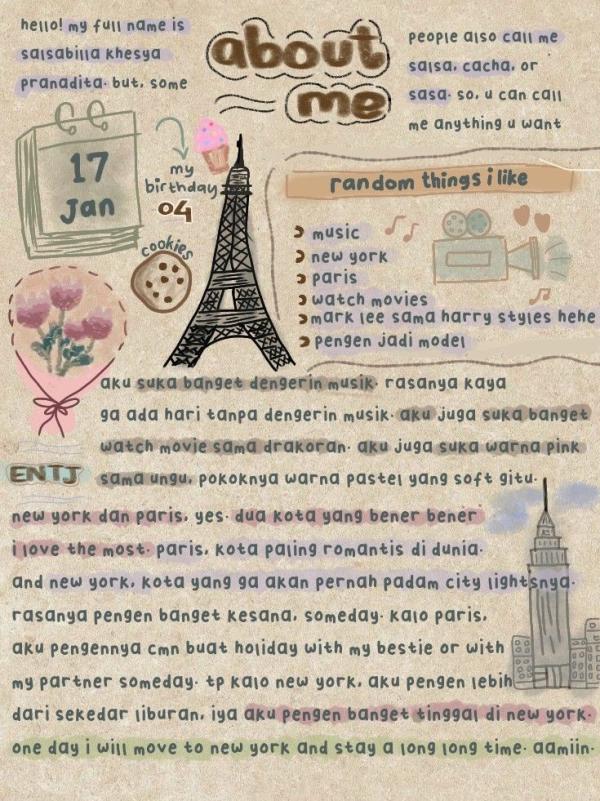 hello! my full name is
salsabilla khesya
pranadita. but, some
about
me
people also call me
salsa, cacha, or
sasa. so, u can call
me anything u want
17
Jan
my
birthday
04
cookies
random things i like
music
new york
paris
watch movies
mark lee sama harry styles hehe
pengen jadi model
aku suka banget dengerin musik. rasanya kaya
ga ada hari tanpa dengerin musik. aku juga suka banget
watch movie sama drakoran. aku juga suka warna pink
ENTJ
sama ungu, pokoknya warna pastel yang soft gitu.
new york dan paris, yes. dua kota yang bener bener
i love the most. paris, kota paling romantis di dunia.
and new york, kota yang ga akan pernah padam city lightsnya.
rasanya pengen banget kesana, someday. kalo paris,
aku pengennya cmn buat holiday with my bestie or with
my partner someday. tp kalo new york, aku pengen lebih
dari sekedar liburan, iya aku pengen banget tinggal di new york.
one day i will move to new york and stay a long long time. aamiin.